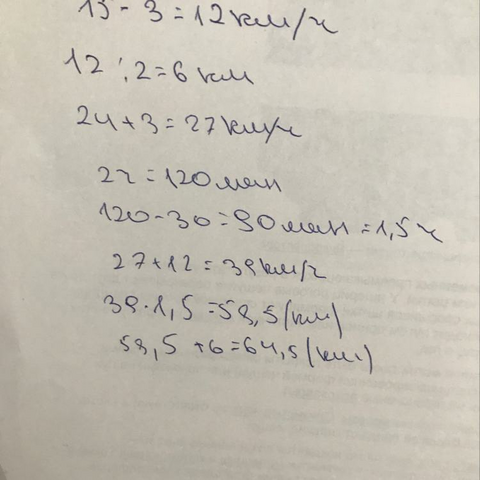 15 - 3 = 12 км/ч
12 : 2 = 6 км
24 + 3 = 27 км/ч
2ч = 120 мин
120 - 30 = 90 мин = 1,5 ч
27 + 12 = 39 км/ч
39 · 1,5 = 58,5 (км)
58,5 + 6 = 64,5 (км)